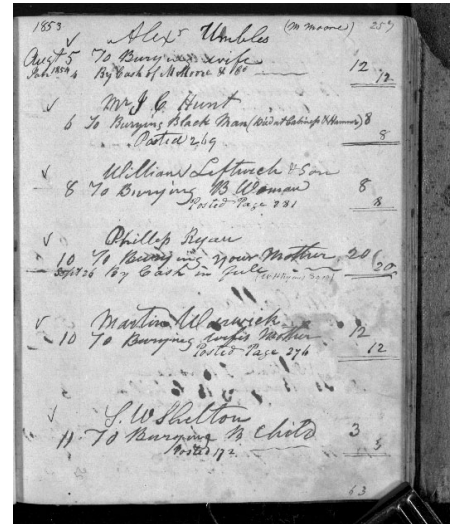 1853 (M Moore) 259
Alexr Umbles
Augt 5 To Burying wife 12
Jan 1854 4 By Cash of M Moore & Co 12
Mr J C Hunt
6 To Burying Black Man 8
Posted 269 8
William Leftwich & Son
8 To Burying B Woman 8
Posted Page 281 8
Phillip Ryan
10 To Burying your Mother 20
Sept 26 By Cash in full 20
Martin Warwick
10 To Burying wifes Mother 12
Posted Page 276 12
S. W Shelton
11 To Burying B Child 3
Posted 172 3
63